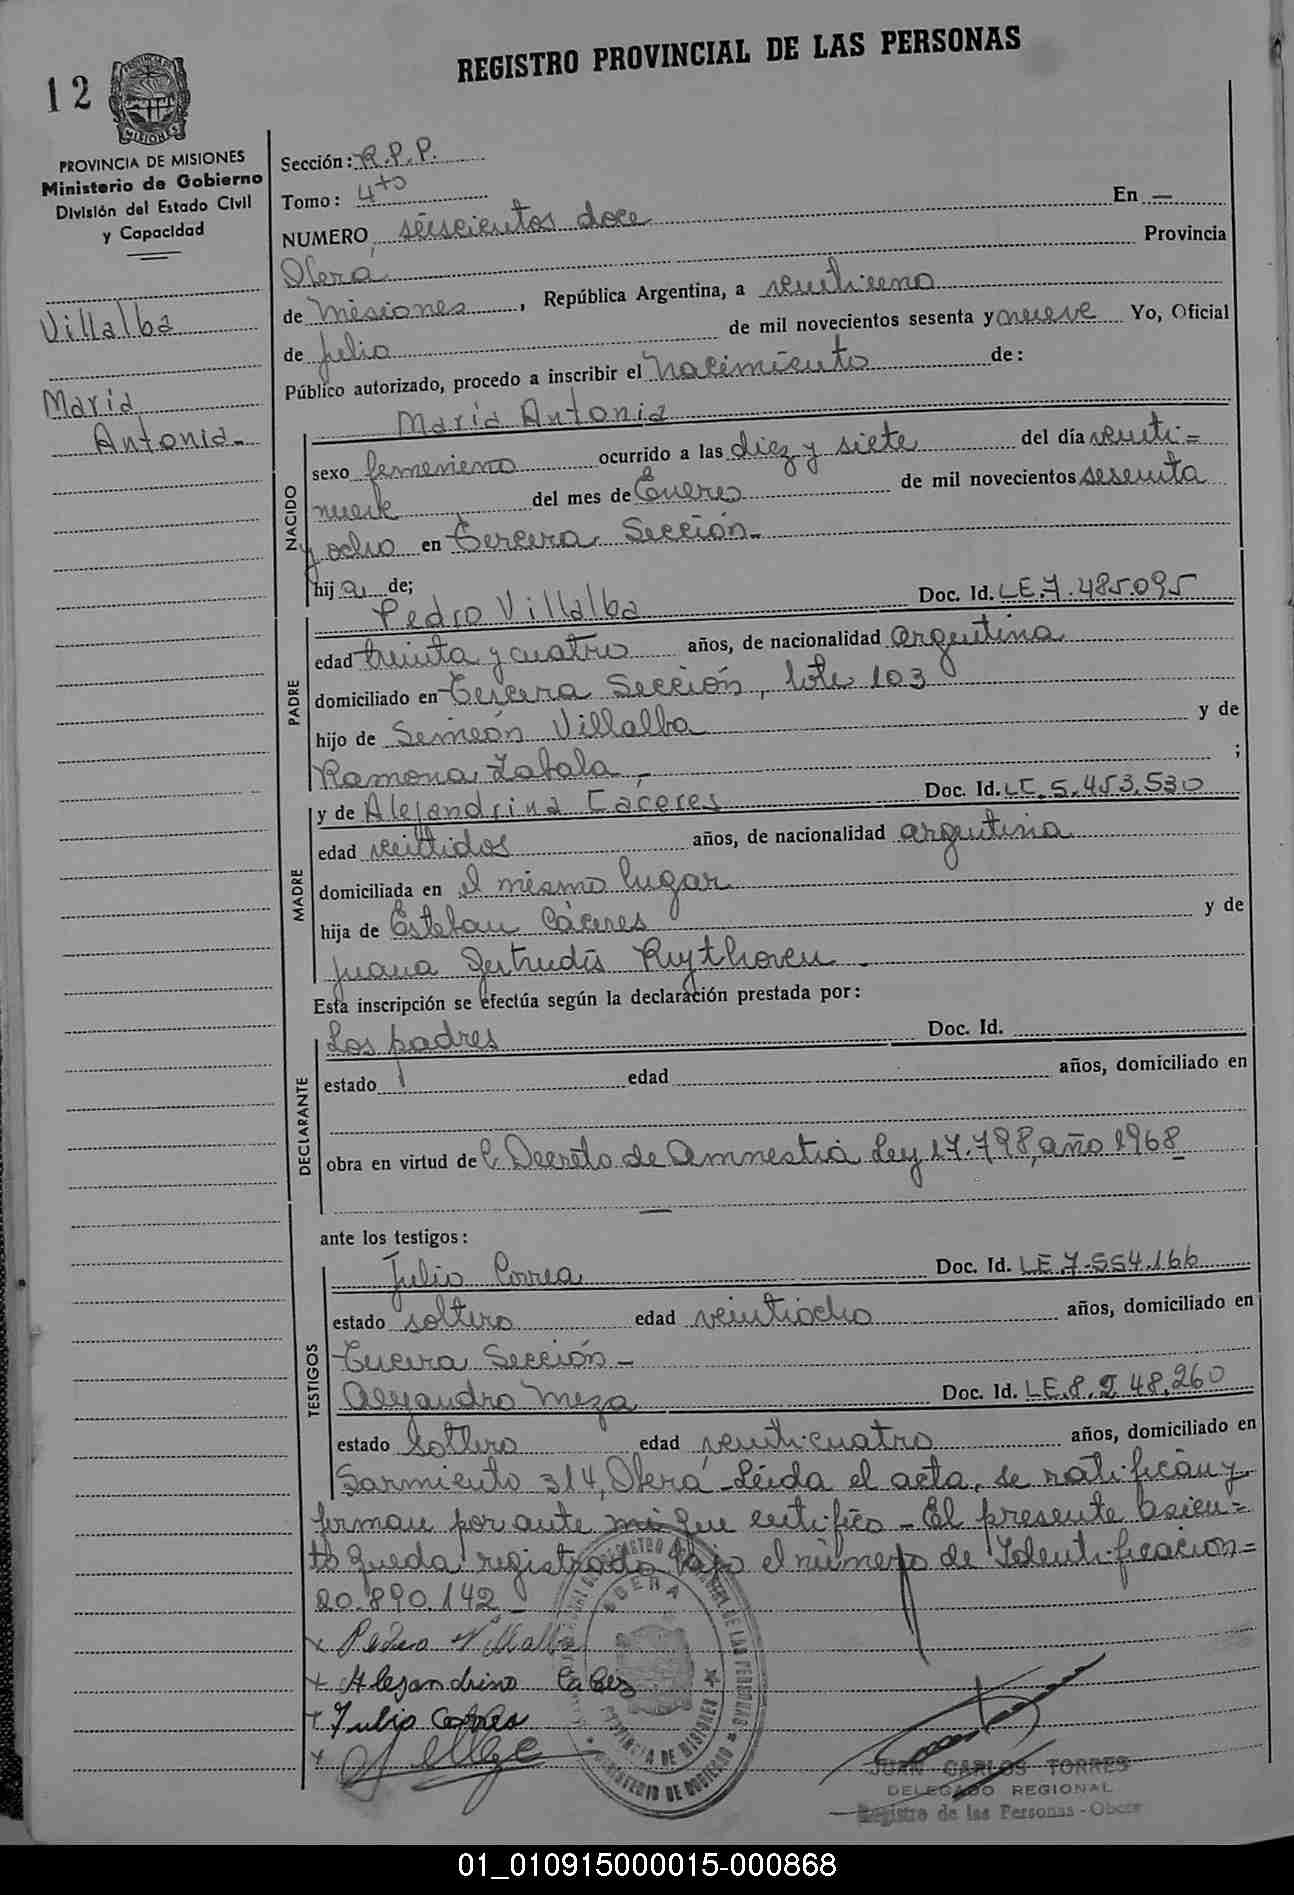 REGISTRO PROVINCIAL DE LAS PERSONAS
12
PROVINCIA DE MISIONES
MISIONES
PROVINCIA DE MISIONES
Ministerio de Gobierno
División del Estado Civil
y Capacidad
Villalba
María
Antonia.-
Sección: R.P.P.
Tomo: 4to
NUMERO seiscientos doce En —
Oberá Provincia
de Misiones, República Argentina, a veintiuno
de Julio de mil novecientos sesenta y nueve Yo, Oficial
Público autorizado, procedo a inscribir el Nacimiento de:
María Antonia
NACIDO
sexo femenieno ocurrido a las diez y siete del día veinti=
nueve del mes de Enero de mil novecientos sesenta
y ocho en Tercera Sección.-
hij a de;
PADRE
Pedro Villalba Doc. Id. LE.7.485.095
edad treinta y cuatro años, de nacionalidad argentina
domiciliado en Tercera Sección, lote 103
hijo de Semeón Villalba y de
Ramona Zabala - ;
MADRE
y de Alejandrina Cáceres Doc. Id. LC.5.453.530
edad veintidos años, de nacionalidad argentina
domiciliada en el mismo lugar
hija de Esteban Cáceres y de
Juana Gertrudis Ruythoven -
Esta inscripción se efectúa según la declaración prestada por:
DECLARANTE
Los padres Doc. Id.
estado edad años, domiciliado en
obra en virtud de l Decreto de Amnestia Ley 17.798, año 1968
—
ante los testigos:
TESTIGOS
Julio Correa Doc. Id. LE.7.554.166
estado soltero edad veintiocho años, domiciliado en
Tercera Sección -
Alejandro Meza Doc. Id. LE.8.248.260
estado Soltero edad veinticuatro años, domiciliado en
Sarmiento 314, Oberá - Leida el acta, se ratificán y
firman por ante mi que certifico - El presente asien=
to queda registrado bajo el número de Identificacion=
20.890.142 -
x Pedro Villalba
x Alejandrino Caßez
x Julio Correa
x
OBERA
PROVINCIA DE MISIONES
JUAN CARLOS TORRES
DELEGADO REGIONAL
Registro de las Personas - Obera
01_010915000015-000868